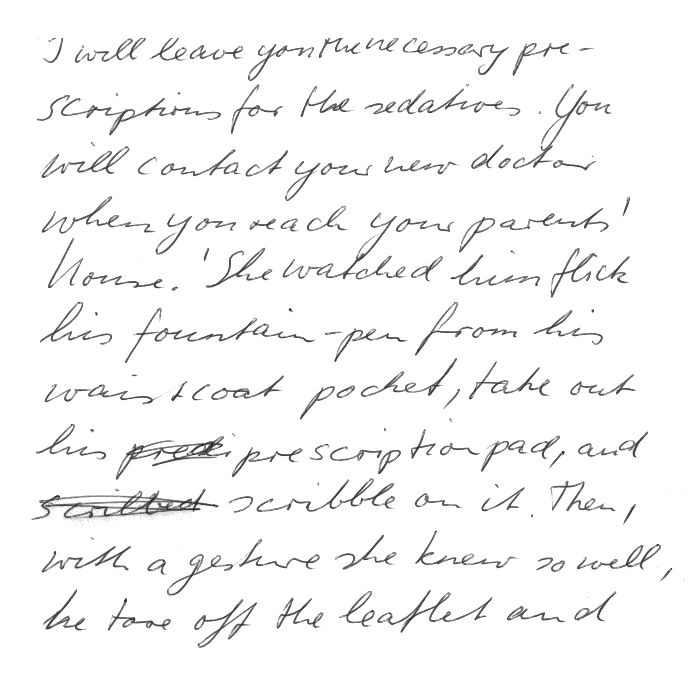 I will leave you the necessary pre-
scriptions for the sedatives. You
will contact your new doctor
when you reach your parents'
house.' She watched him flick
his fountain-pen from his
waistcoat pocket, take out
his prescription pad, and
scribble on it. Then,
with a gesture she knew so well,
he tore off the leaflet and